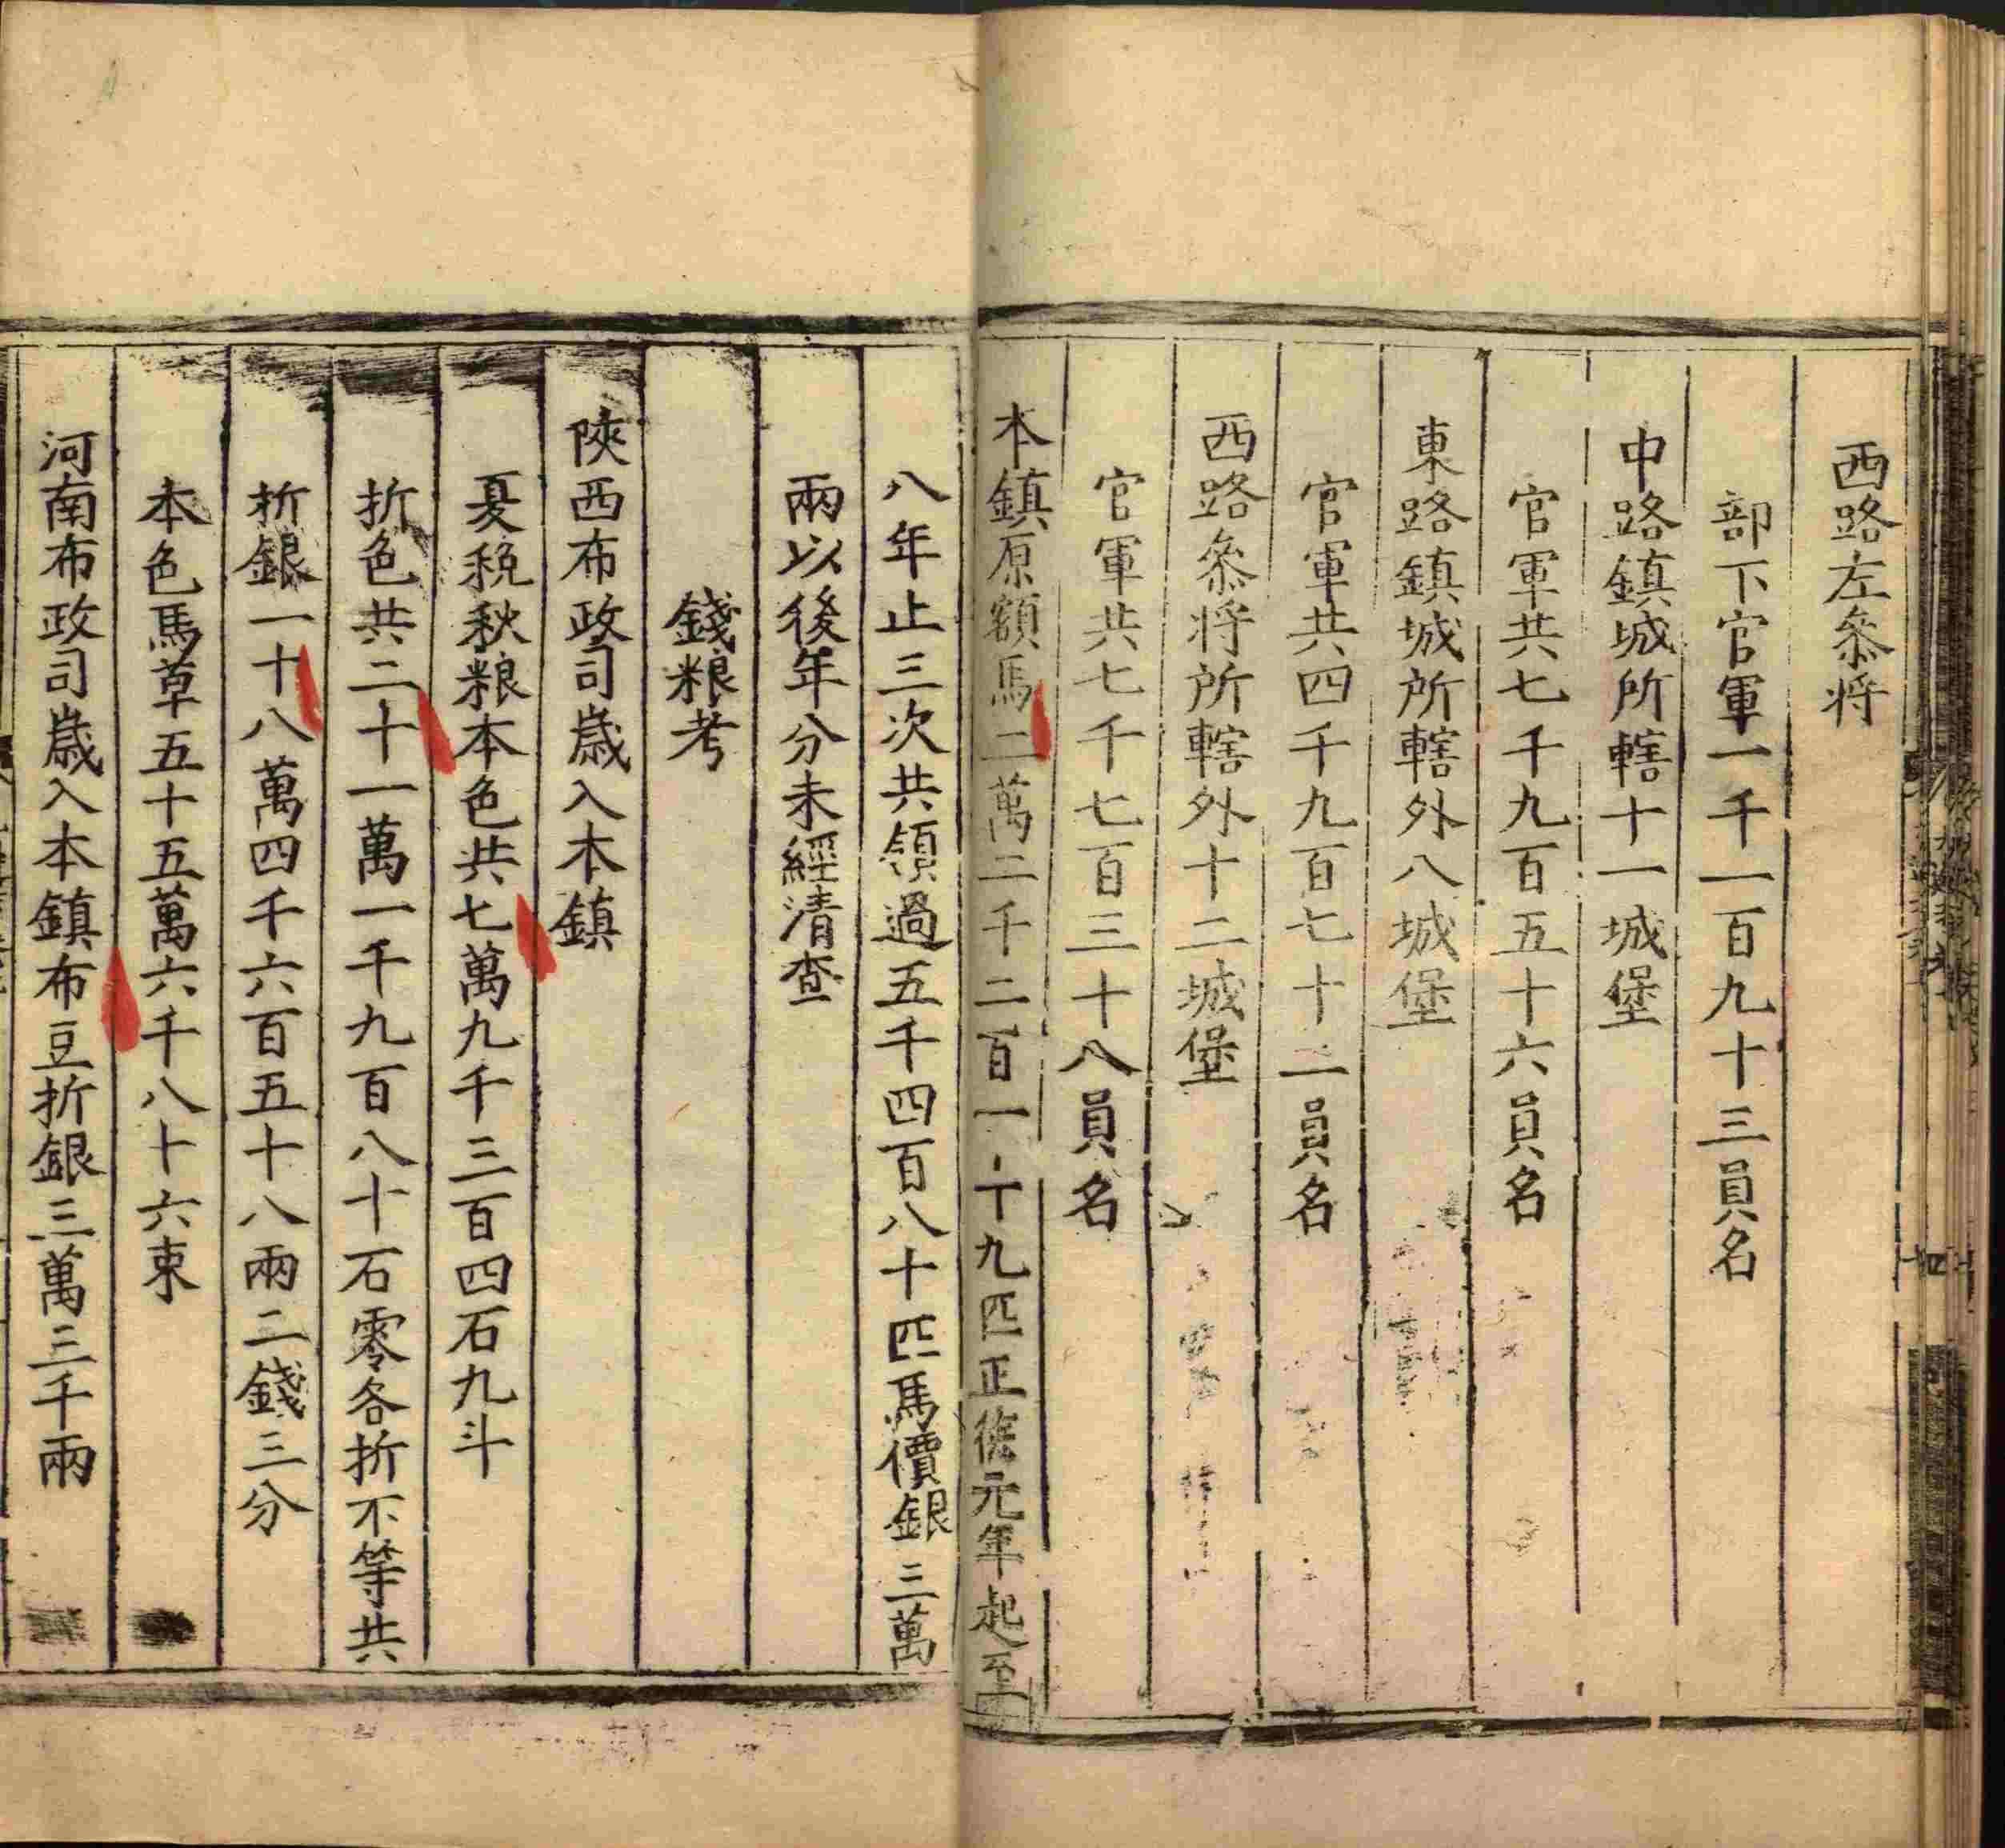 西路左叅將
部下官軍一千一百九十三員名
中路鎮城所轄十一城堡
官軍共七千九百五十六員名
東路鎮城所轄外八城堡
官軍共四千九百七十二員名
西路叅將所轄外十二城堡
官軍共七千七百三十八員名
本鎮原額馬二萬二千二百一十九匹正德元年起至
八年止三次共領過五千四百八十匹馬價銀三萬
兩以後年分未經清查
錢粮考
陝西布政司歲入本鎮
夏稅秋粮本色共七萬九千三百四石九斗
折色共二十一萬一千九百八十石零各折不等共
折銀一十八萬四千六百五十八兩二錢三分
本色馬草五十五萬六千八十六束
河南布政司歲入本鎮布豆折銀三萬三千兩